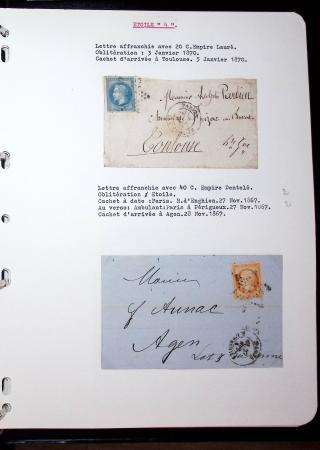 ETOILE "4".
Lettre affranchie avec 20 C.Empire Lauré.
Oblitération : 3 Janvier 1870.
Cachet d'arrivée à Toulouse. 5 Janvier 1870.
Monsieur
Toulouse
Lettre affranchie avec 40 C. Empire Dentelé.
Oblitération Etoile.
Cachet à date :Paris. R.d'Enghien.27 Nov.1867.
Au verso: Ambulant:Paris à Périgueux.27 Nov.1867.
Cachet d'arrivée à Agen.28 Nov.1867.
Aunac
Agen